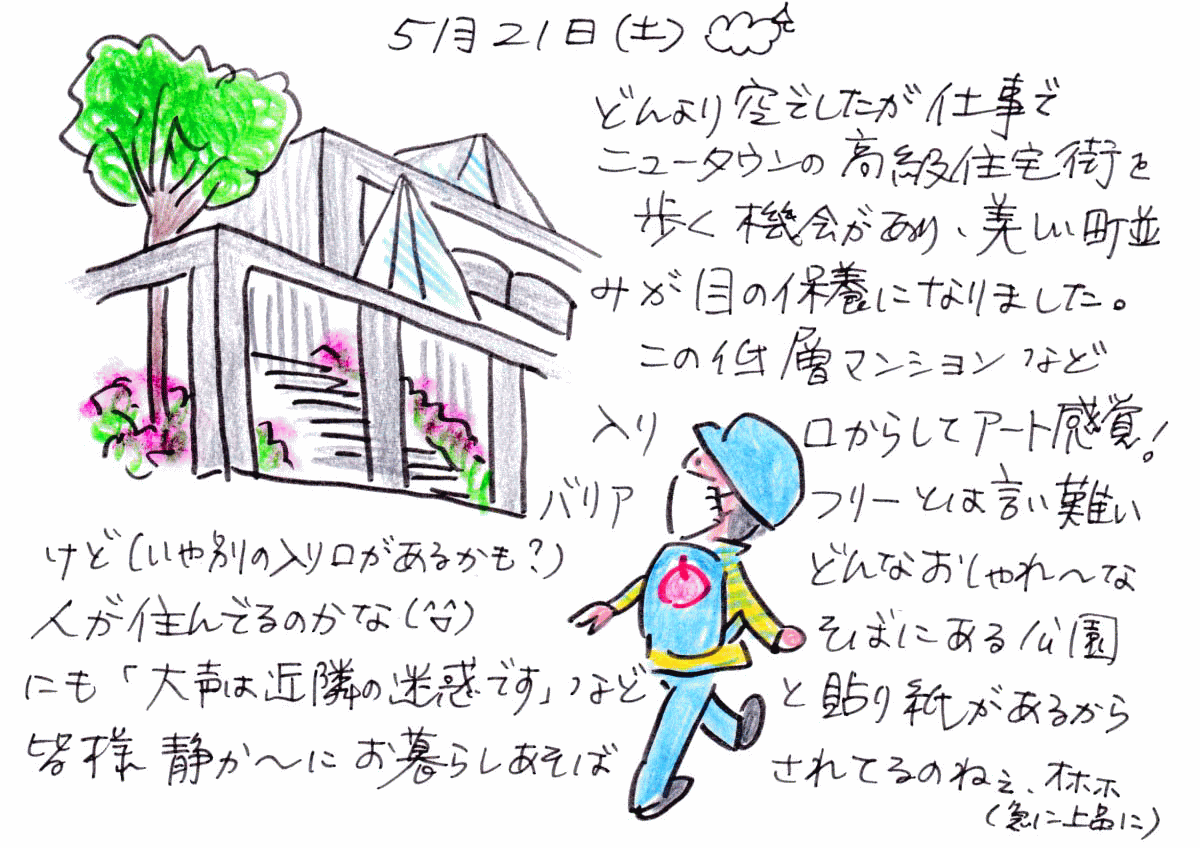 5月21日(土)
どんより空でしたが仕事で
ニュータウンの高級住宅街を
歩く機会があり、美しい町並
みが目の保養になりました。
この低層マンションなど
入り口からしてアート感覚!
バリアフリーとは言い難い
けど(いや別の入り口があるかも?)どんなおしゃれ〜な
人が住んでるのかな(^^)そばにある公園
にも「大声は近隣の迷惑です」などと貼り紙があるから
皆様静か〜にお暮らしあそばされてるのねぇ、ホホホ
(急に上品に)